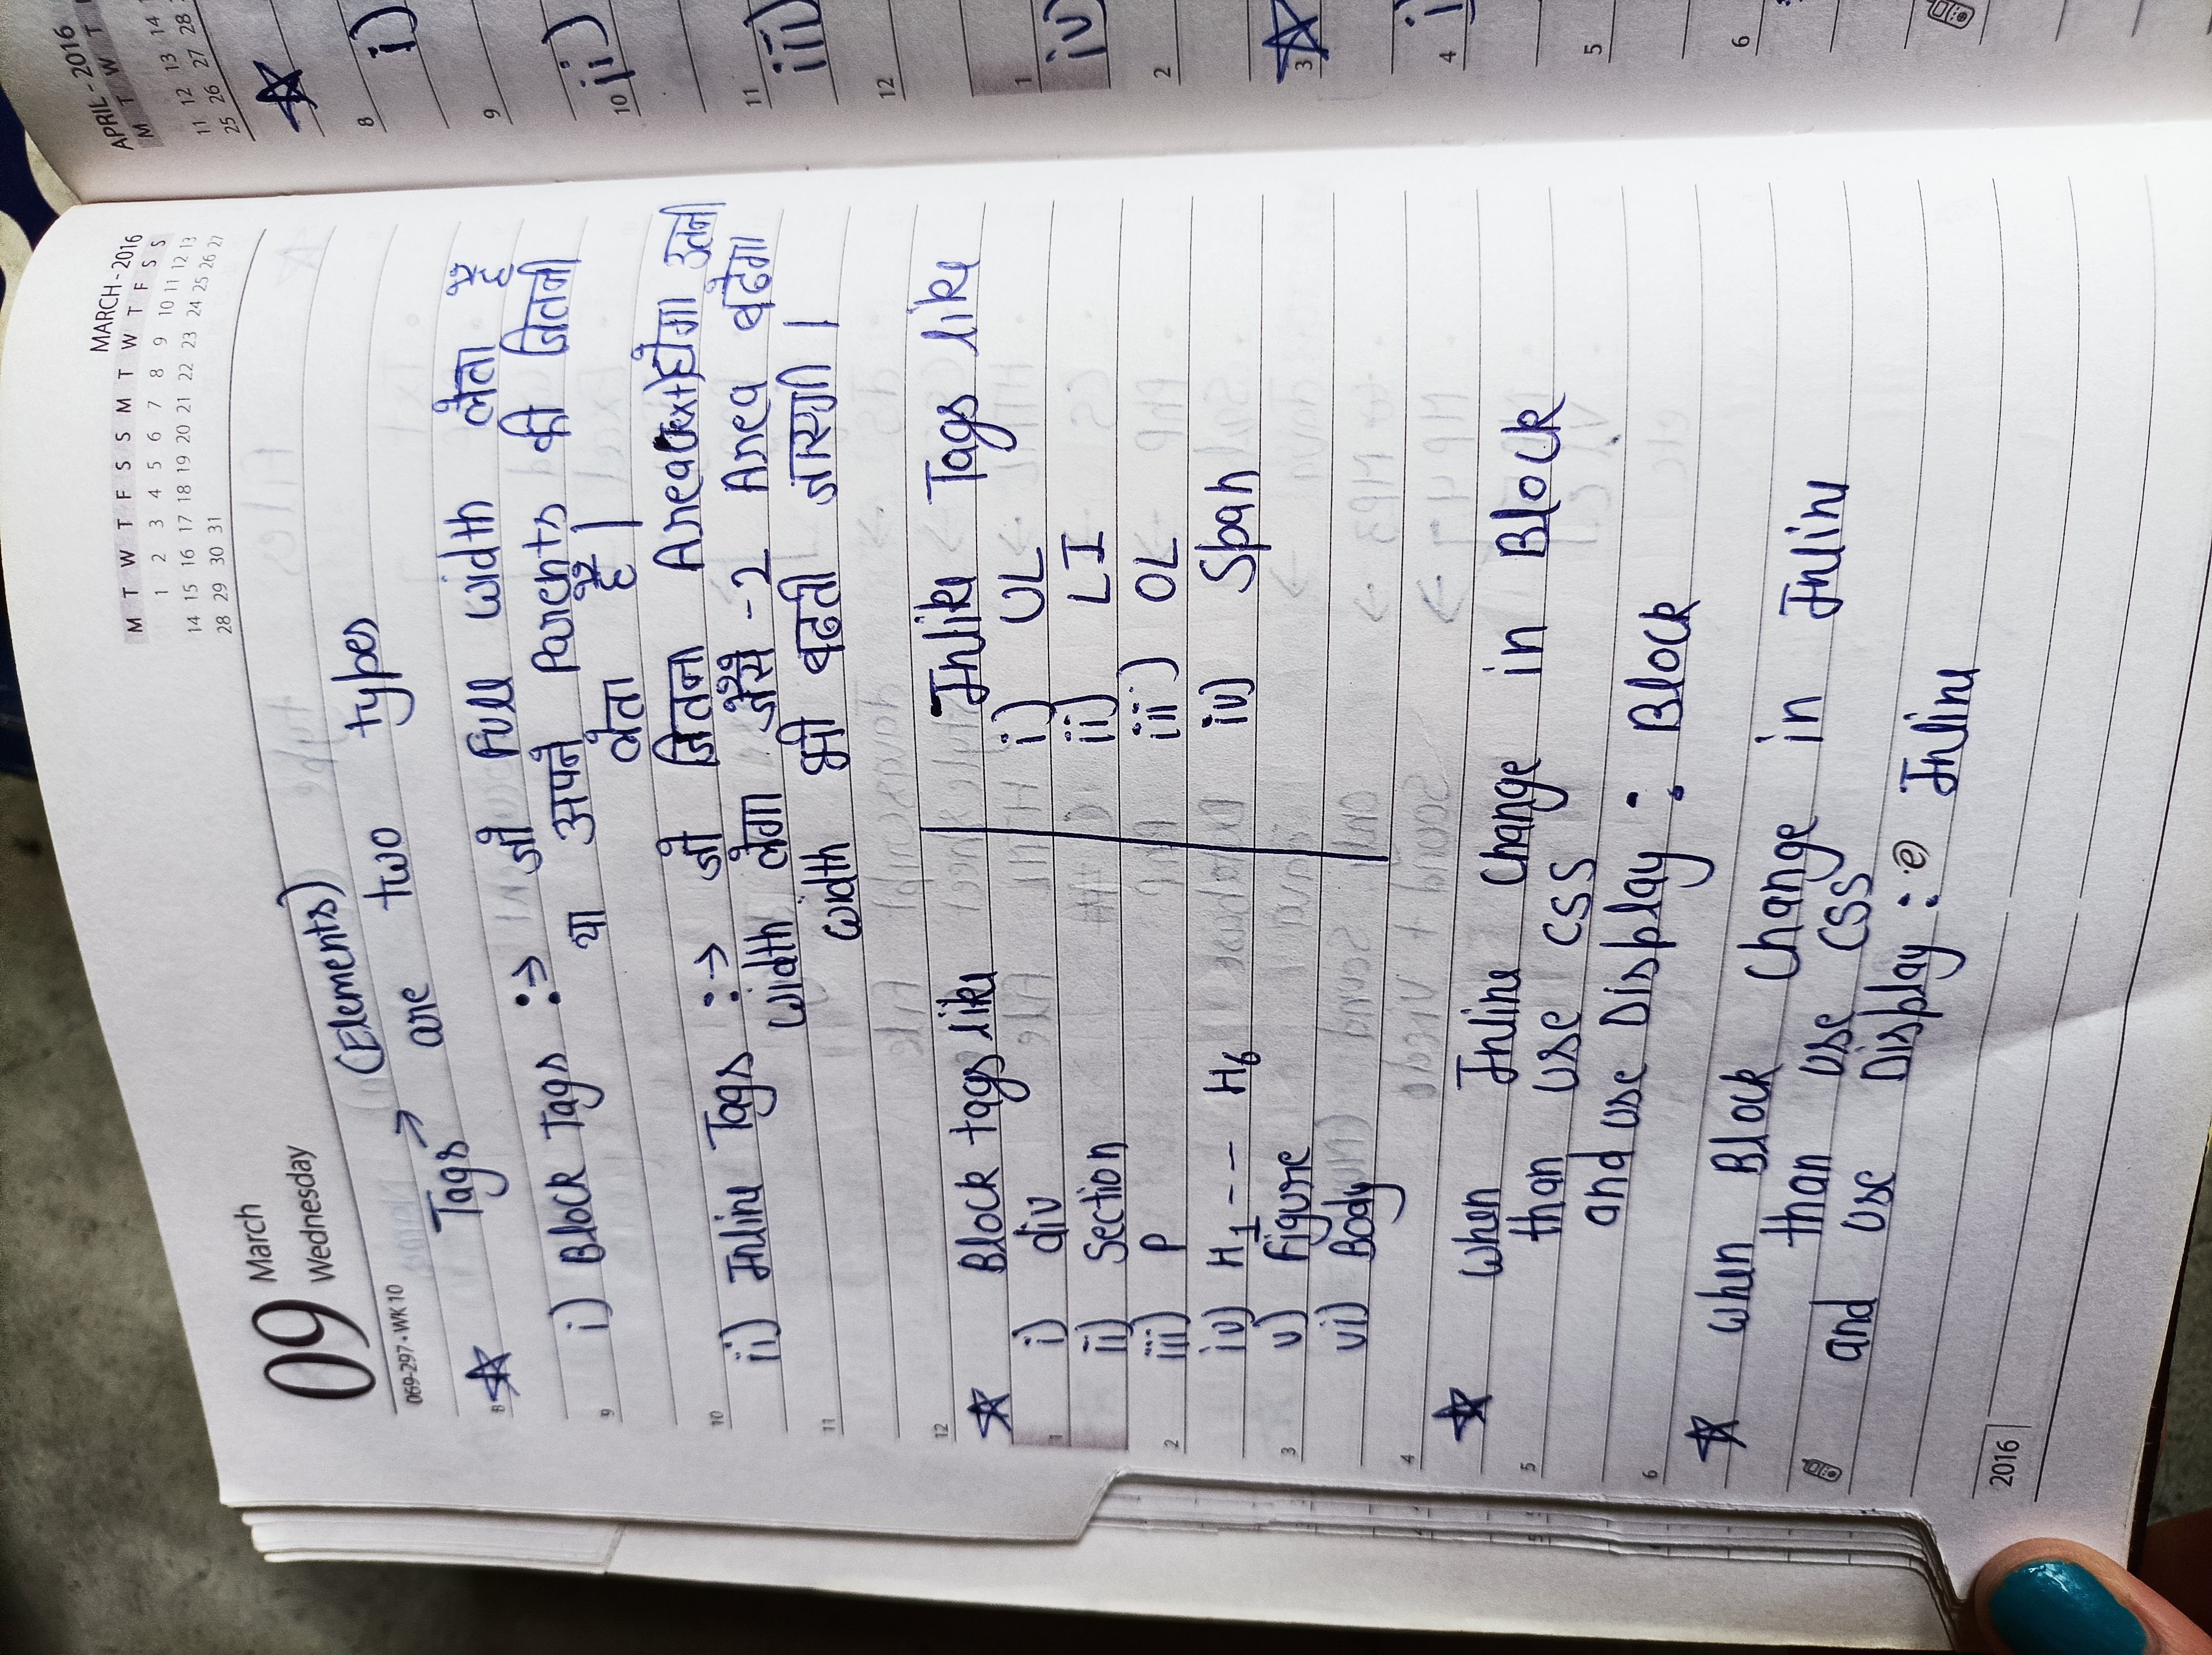 09 March
Wednesday
069-297 • WK 10
MARCH - 2016
M T W T F S S M T W T F S S
1 2 3 4 5 6 7 8 9 10 11 12 13
14 15 16 17 18 19 20 21 22 23 24 25 26 27
28 29 30 31
(Elements)
8 ☆ Tags → are two types
9 i) Block Tags :→ जो Full width लेता है
या अपने Parents की जितनी
लेता है।
10 ii) Inline Tags :→ जो जितना Area(text)होगा उतनी
width लेगा जैसे -2 Area बढेगा
11 width भी बढती जाएगी।
12 ☆ Block tags like Inlike Tags like
1 i) div i) UL
ii) Section ii) LI
2 iii) P iii) OL
iv) H1 --- H6 iv) Span
3 v) Figure
vi) Body
4 ☆ when Inline Change in Block
5 than use CSS
and use Display : Block
6 ☆ when Block Change in Inline
than use CSS
and use Display : Inline
2016
APRIL - 2016
M T W T
11 12 13 14
25 26 27 28
☆
8 i)
9
10 ii)
11 iii)
12
1 iv)
2
3 ☆
4 i)
5
6